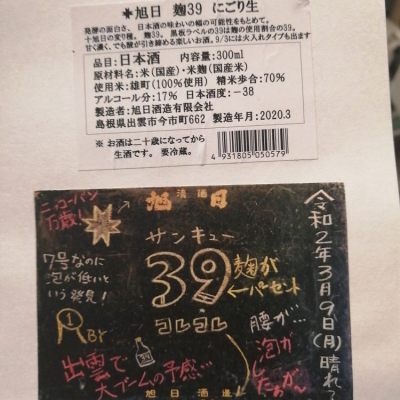 旭日 麹39 にごり生
発酵の面白さ、日本酒の味わいの幅の可能性をもとめて。
十旭日の変り種。麹39。黒板ラベルの39は麹の使用割合の39。
甘く濃く、でも酸が引き締める楽しいお酒。9/3には火入れタイプも出ます
品目:日本酒 内容量:300ml
原材料名:米(国産)・米麹(国産米)
使用米:雄町(100%使用) 精米歩合:70%
アルコール分:17% 日本酒度:-38
製造者:旭日酒造有限会社
島根県出雲市今市町662 製造年月:2020.3
※ お酒は二十歳になってから
生酒です。要冷蔵。
4931805050579
ニッコーバン万歳!
清酒
旭日
サンキュー
39
麹が
←パーセント
コレコレ
7号なのに
泡が低いと
いう発見!
1
R BY
出雲で
大ブームの予感…
腰が…
泡が
したぁが〜
令和2年3月9日(月)晴れ
旭日酒造